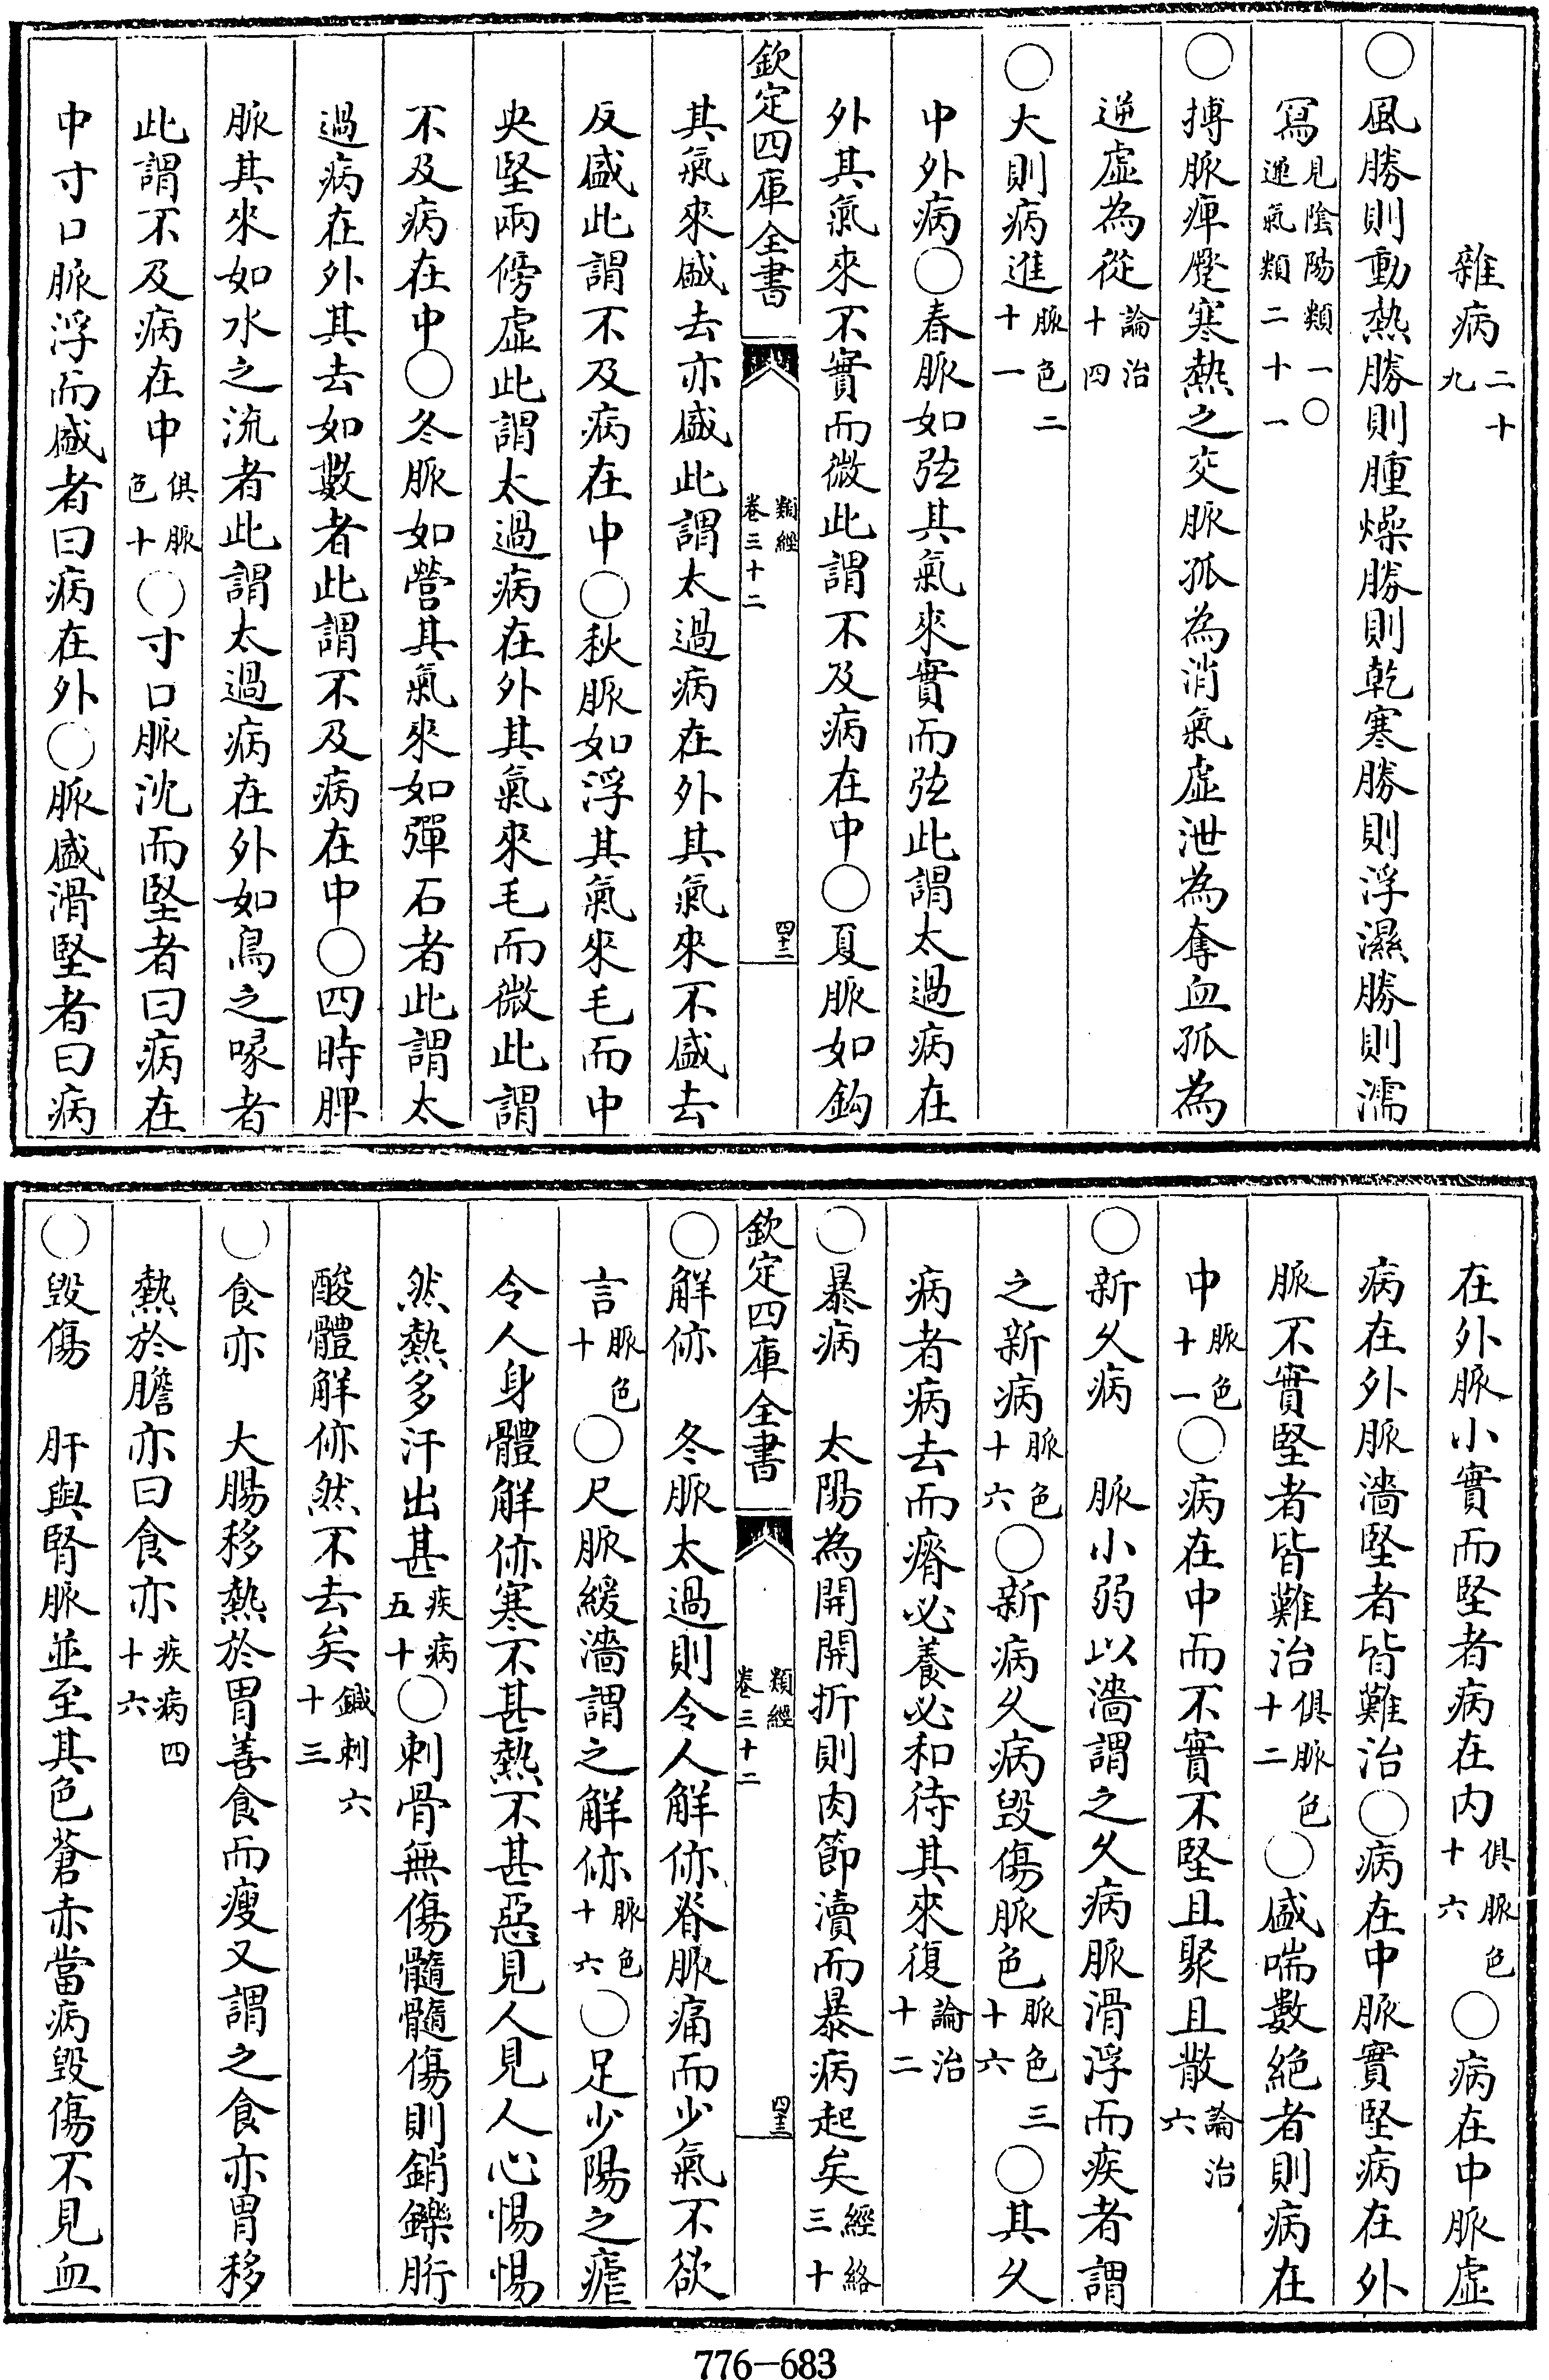 雜病二十九
○風勝則動熱勝則腫燥勝則乾寒勝則浮濕勝則濡
寫見陰陽類一○運氣類二十一
○搏脈痺躄寒熱之交脈孤為消氣虛泄為奪血孤為
逆虛為從論治十四
○大則病進脈色二十一
中外病○春脈如弦其氣來實而弦此謂太過病在
外其氣來不實而微此謂不及病在中○夏脈如鈎
欽定四庫全書
類經
卷三十二
四十二
其氣來盛去亦盛此謂太過病在外其氣來不盛去
反盛此謂不及病在中○秋脈如浮其氣來毛而中
央堅兩傍虛此謂太過病在外其氣來毛而微此謂
不及病在中○冬脈如營其氣來如彈石者此謂太
過病在外其去如數者此謂不及病在中○四時脾
脈其來如水之流者此謂太過病在外如鳥之喙者
此謂不及病在中俱脈色十○寸口脈沈而堅者曰病在
中寸口脈浮而盛者曰病在外○脈盛滑堅者曰病
在外脈小實而堅者病在内俱脈色十六○病在中脈虛
病在外脈濇堅者皆難治○病在中脈實堅病在外
脈不實堅者皆難治俱脈色十二○盛喘數絕者則病在
中脈色十一○病在中而不實不堅且聚且散論治六
○新久病　脈小弱以濇謂之久病脈滑浮而疾者謂
之新病脈色十六○新病久病毀傷脈色脈色三十六○其久
病者病去而瘠必養必和待其來復論治十二
○暴病　太陽為開開折則肉節瀆而暴病起矣經絡三十
欽定四庫全書
類經
卷三十二
四十三
○解㑊　冬脈太過則令人解㑊脊脈痛而少氣不欲
言脈色十○尺脈緩濇謂之解㑊脈色十六○足少陽之瘧
令人身體解㑊寒不甚熱不甚惡見人見人心惕惕
然熱多汗出甚疾病五十○刺骨無傷髓髓傷則銷鑠胻
酸體解㑊然不去矣鍼刺六十三
○食亦　大腸移熱於胃善食而瘦又謂之食亦胃移
熱於膽亦曰食亦疾病四十六
○毀傷　肝與腎脈並至其色蒼赤當病毀傷不見血
776-683